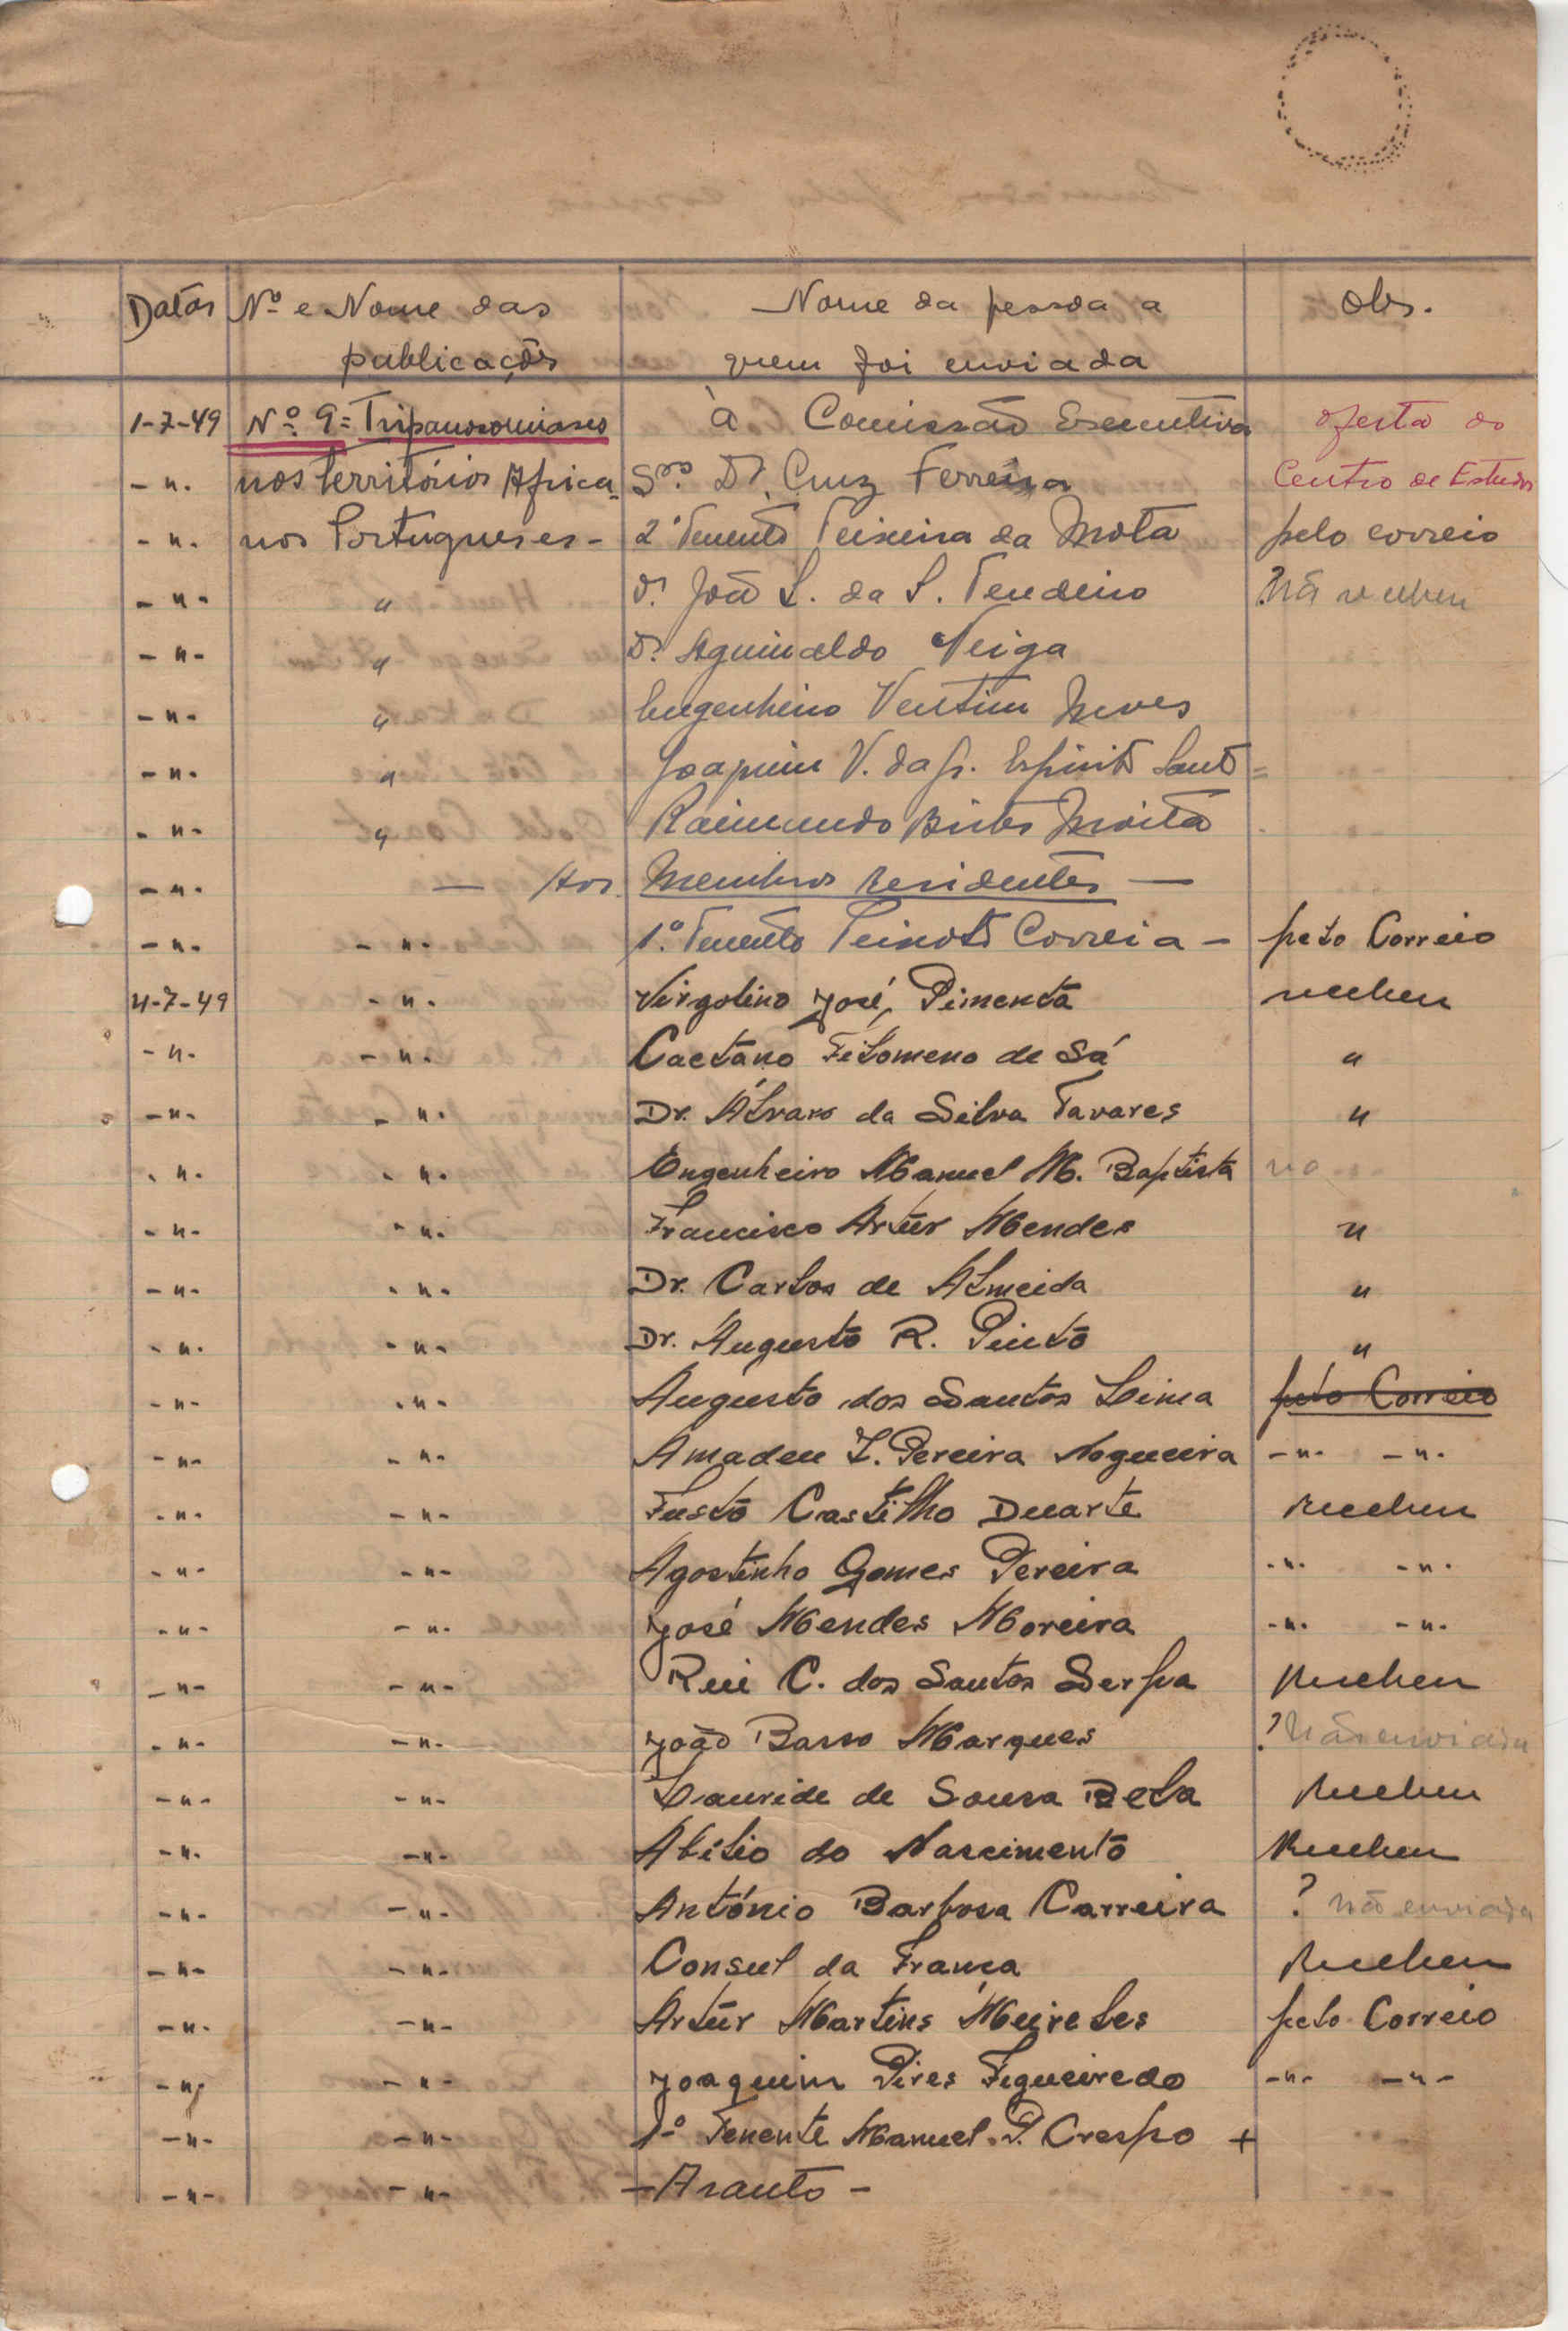 Datas Nº e Nome das Nome da pessoa a Obs.
publicações quem foi enviada
1-7-49 Nº 9= Tripanosomiases À Comissão Executiva oferta do
-"- nos territórios Africa- Srs. Dr. Cruz Ferreira Centro de Estudos
-"- nos Portugueses- 2º Tenente Teixeira da Mota pelo correio
-"- " Dr. João da S. Tendeiro ? não recebeu
-"- " Dr. Aguinaldo Veiga
-"- " Engenheiro Ventim Neves
-"- " Joaquim V. da Espirito Santo=
-"- " Raimundo Moita
-"- — Aos Membros residentes —
-"- -"- 1º Tenente Peixoto Correia - pelo Correio
4-7-49 -"- Virgolino José Pimenta recebeu
-"- -"- Caetano Filomeno de Sá "
-"- -"- Dr. Álvaro da Silva Tavares "
-"- -"- Engenheiro Manuel M. Baptista
-"- -"- Francisco Artur Mendes "
-"- -"- Dr. Carlos de Almeida "
-"- -"- Dr. Augusto R. Pinto "
-"- -"- Augusto dos Santos Lima pelo Correio
-"- -"- Amadeu Pereira Nogueira -"- -"-
-"- -"- Fusto Castilho Duarte Recebeu
-"- -"- Agostinho Gomes Pereira -"- -"-
-"- -"- José Mendes Moreira -"- -"-
-"- -"- Rui C. dos Santos Serpa Recebeu
-"- -"- João Basso Marques ? Não enviada
-"- -"- de Sousa Bela Recebeu
-"- -"- Abilio do Nascimento Recebeu
-"- -"- António Barbosa Carreira ? não enviada
-"- -"- Consul da França Recebeu
-"- -"- Artur Martins Meireles pelo Correio
-"- -"- Joaquim Pires Figueiredo -"- -"-
-"- -"- 1º Tenente Manuel P. Crespo +
-"- -"- -Arauto-